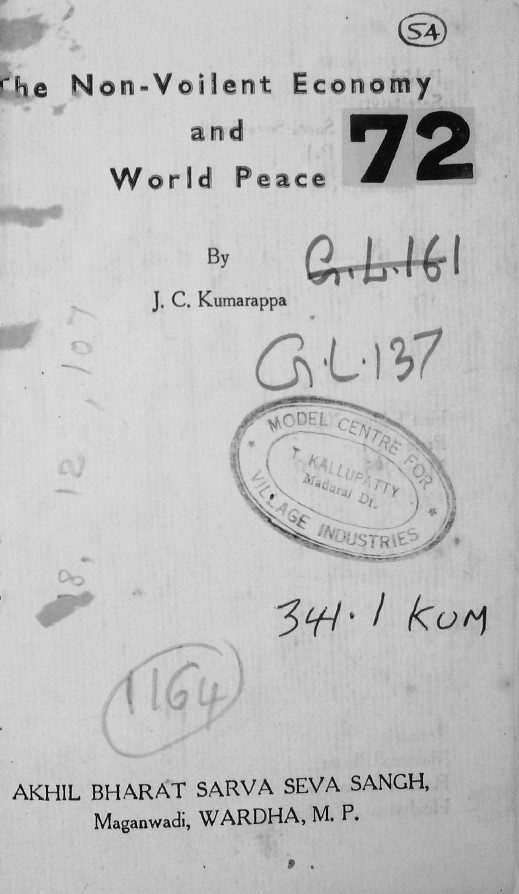 54
The Non-Voilent Economy
and
72
World Peace
By
G.L.161
J. C. Kumarappa
G.L.137
MODEL CENTRE FOR
T. KALLUPATTY
Madurai Dt.
VILLAGE INDUSTRIES
18, 12, 107
341.1 KUM
1164
AKHIL BHARAT SARVA SEVA SANGH,
Maganwadi, WARDHA, M. P.